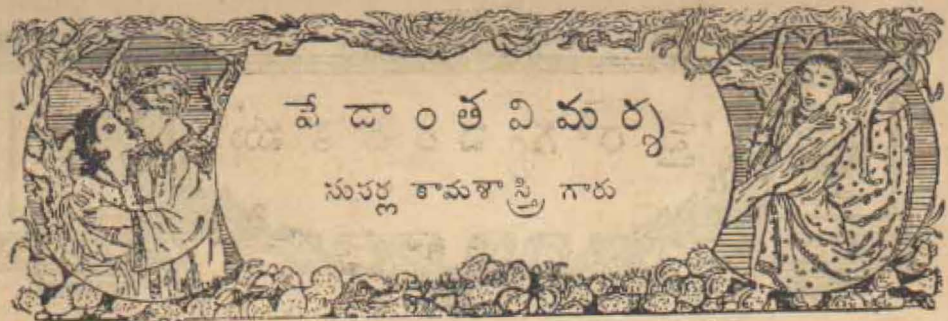 వే దాం త వి మ ర్శ
సుసర్ల కామశాస్త్రి గారు